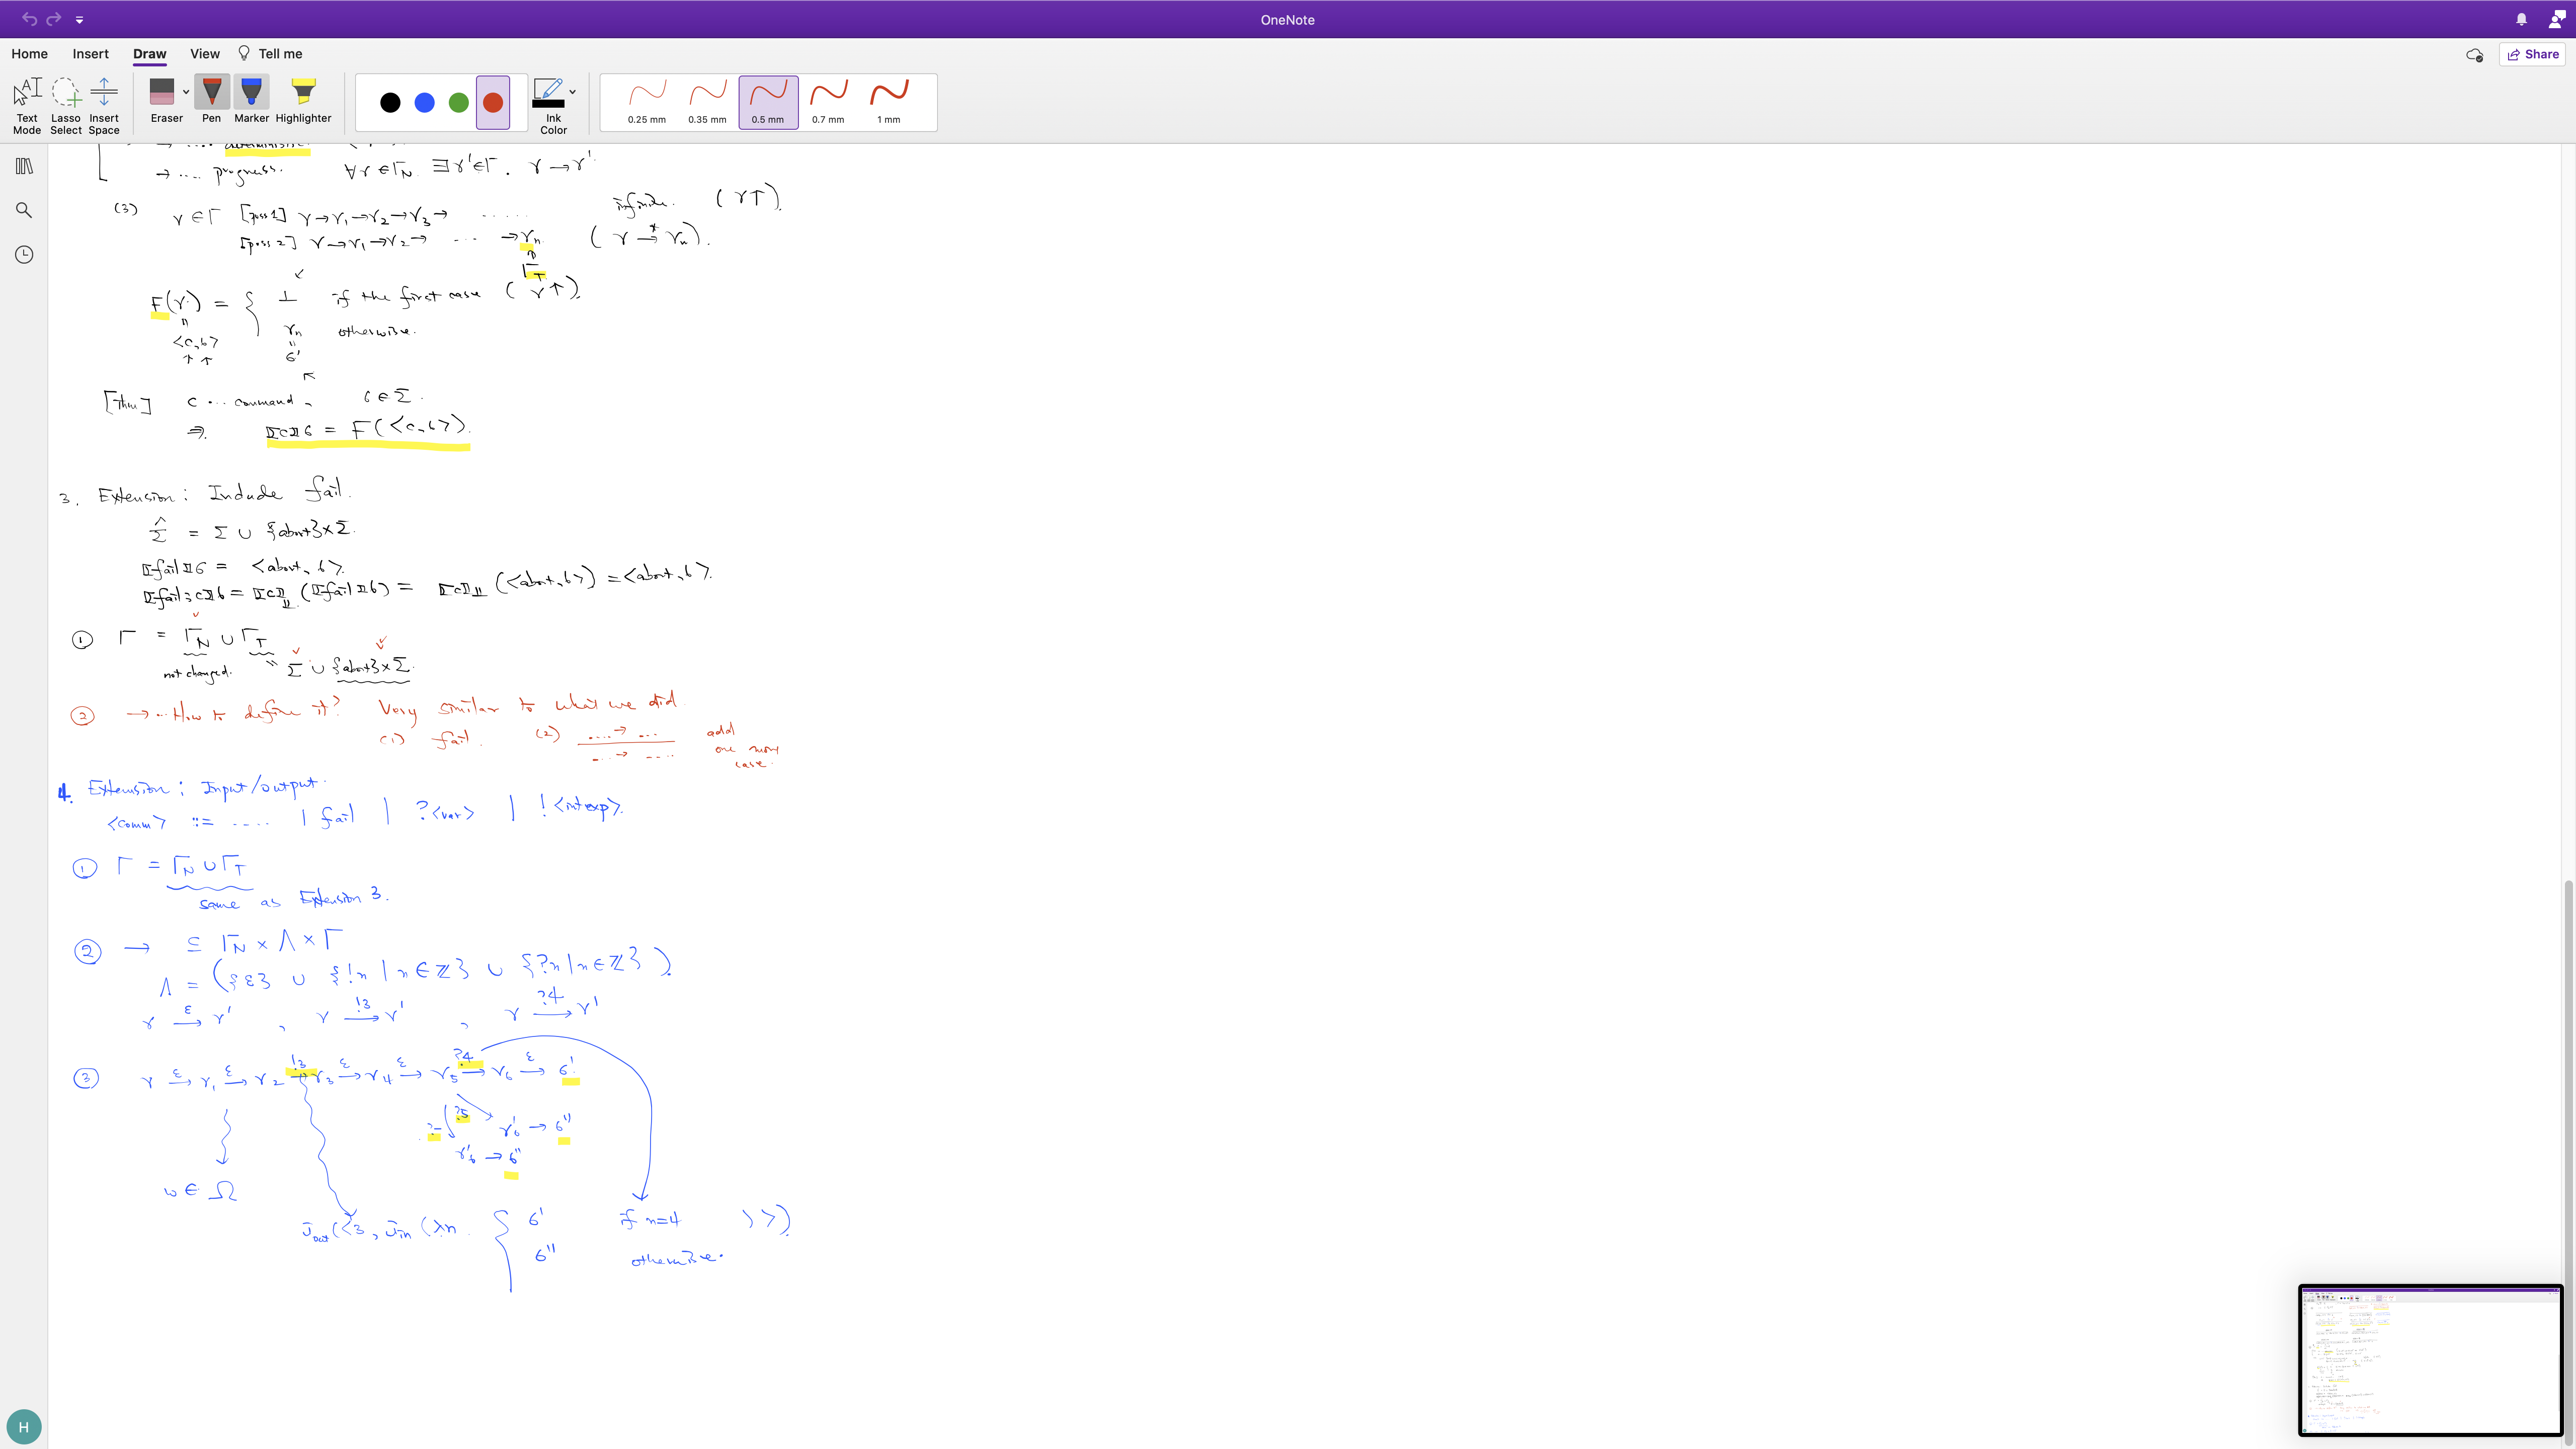 OneNote
Home Insert Draw View Tell me
Share
Text Mode
Lasso Select
Insert Space
Eraser
Pen
Marker
Highlighter
Ink Color
0.25 mm 0.35 mm 0.5 mm 0.7 mm 1 mm
→ .... progress. ∀γ∈Γ_N. ∃γ'∈Γ. γ → γ'.
(3) γ∈Γ [poss 1] γ→γ₁→γ₂→γ₃→ ...... infinite. (γ↑).
[poss 2] γ→γ₁→γ₂→ ... →γₙ. (γ →* γₙ).
Γ_T
F(γ) = { ⊥ if the first case (γ↑).
γₙ otherwise.
<c,σ>
σ'
[Thm] c ... command, σ∈Σ.
⇒ ⟦c⟧σ = F(<c,σ>).
3. Extension: Include fail.
Σ̂ = Σ ∪ {abort}×Σ.
⟦fail⟧σ = <abort, σ>.
⟦fail;c⟧σ = ⟦c⟧⊥⊥(⟦fail⟧σ) = ⟦c⟧⊥⊥(<abort,σ>) = <abort,σ>.
① Γ = Γ_N ∪ Γ_T
not changed. Σ ∪ {abort}×Σ.
② → ... How to define it? Very similar to what we did.
(1) fail. (2) ....→ ... add
...→ .... one more
case.
4. Extension: Input/output.
<comm> ::= ..... | fail | ?<var> | !<intexp>.
① Γ = Γ_N ∪ Γ_T
same as Extension 3.
② → ⊆ Γ_N × Λ × Γ
Λ = ({ε} ∪ {!n | n∈ℤ} ∪ {?n | n∈ℤ}).
γ –ε→ γ' , γ –!3→ γ' , γ –?4→ γ'
③ γ –ε→ γ₁ –ε→ γ₂ –!3→ γ₃ –ε→ γ₄ –ε→ γ₅ –?4→ γ₆ –ε→ σ'.
?5 γ₆' → σ''
?- γ₆' → σ''
ω ∈ Ω
J_out(<3, J_in(λn. { σ' if n=4 )>).
σ'' otherwise.
H